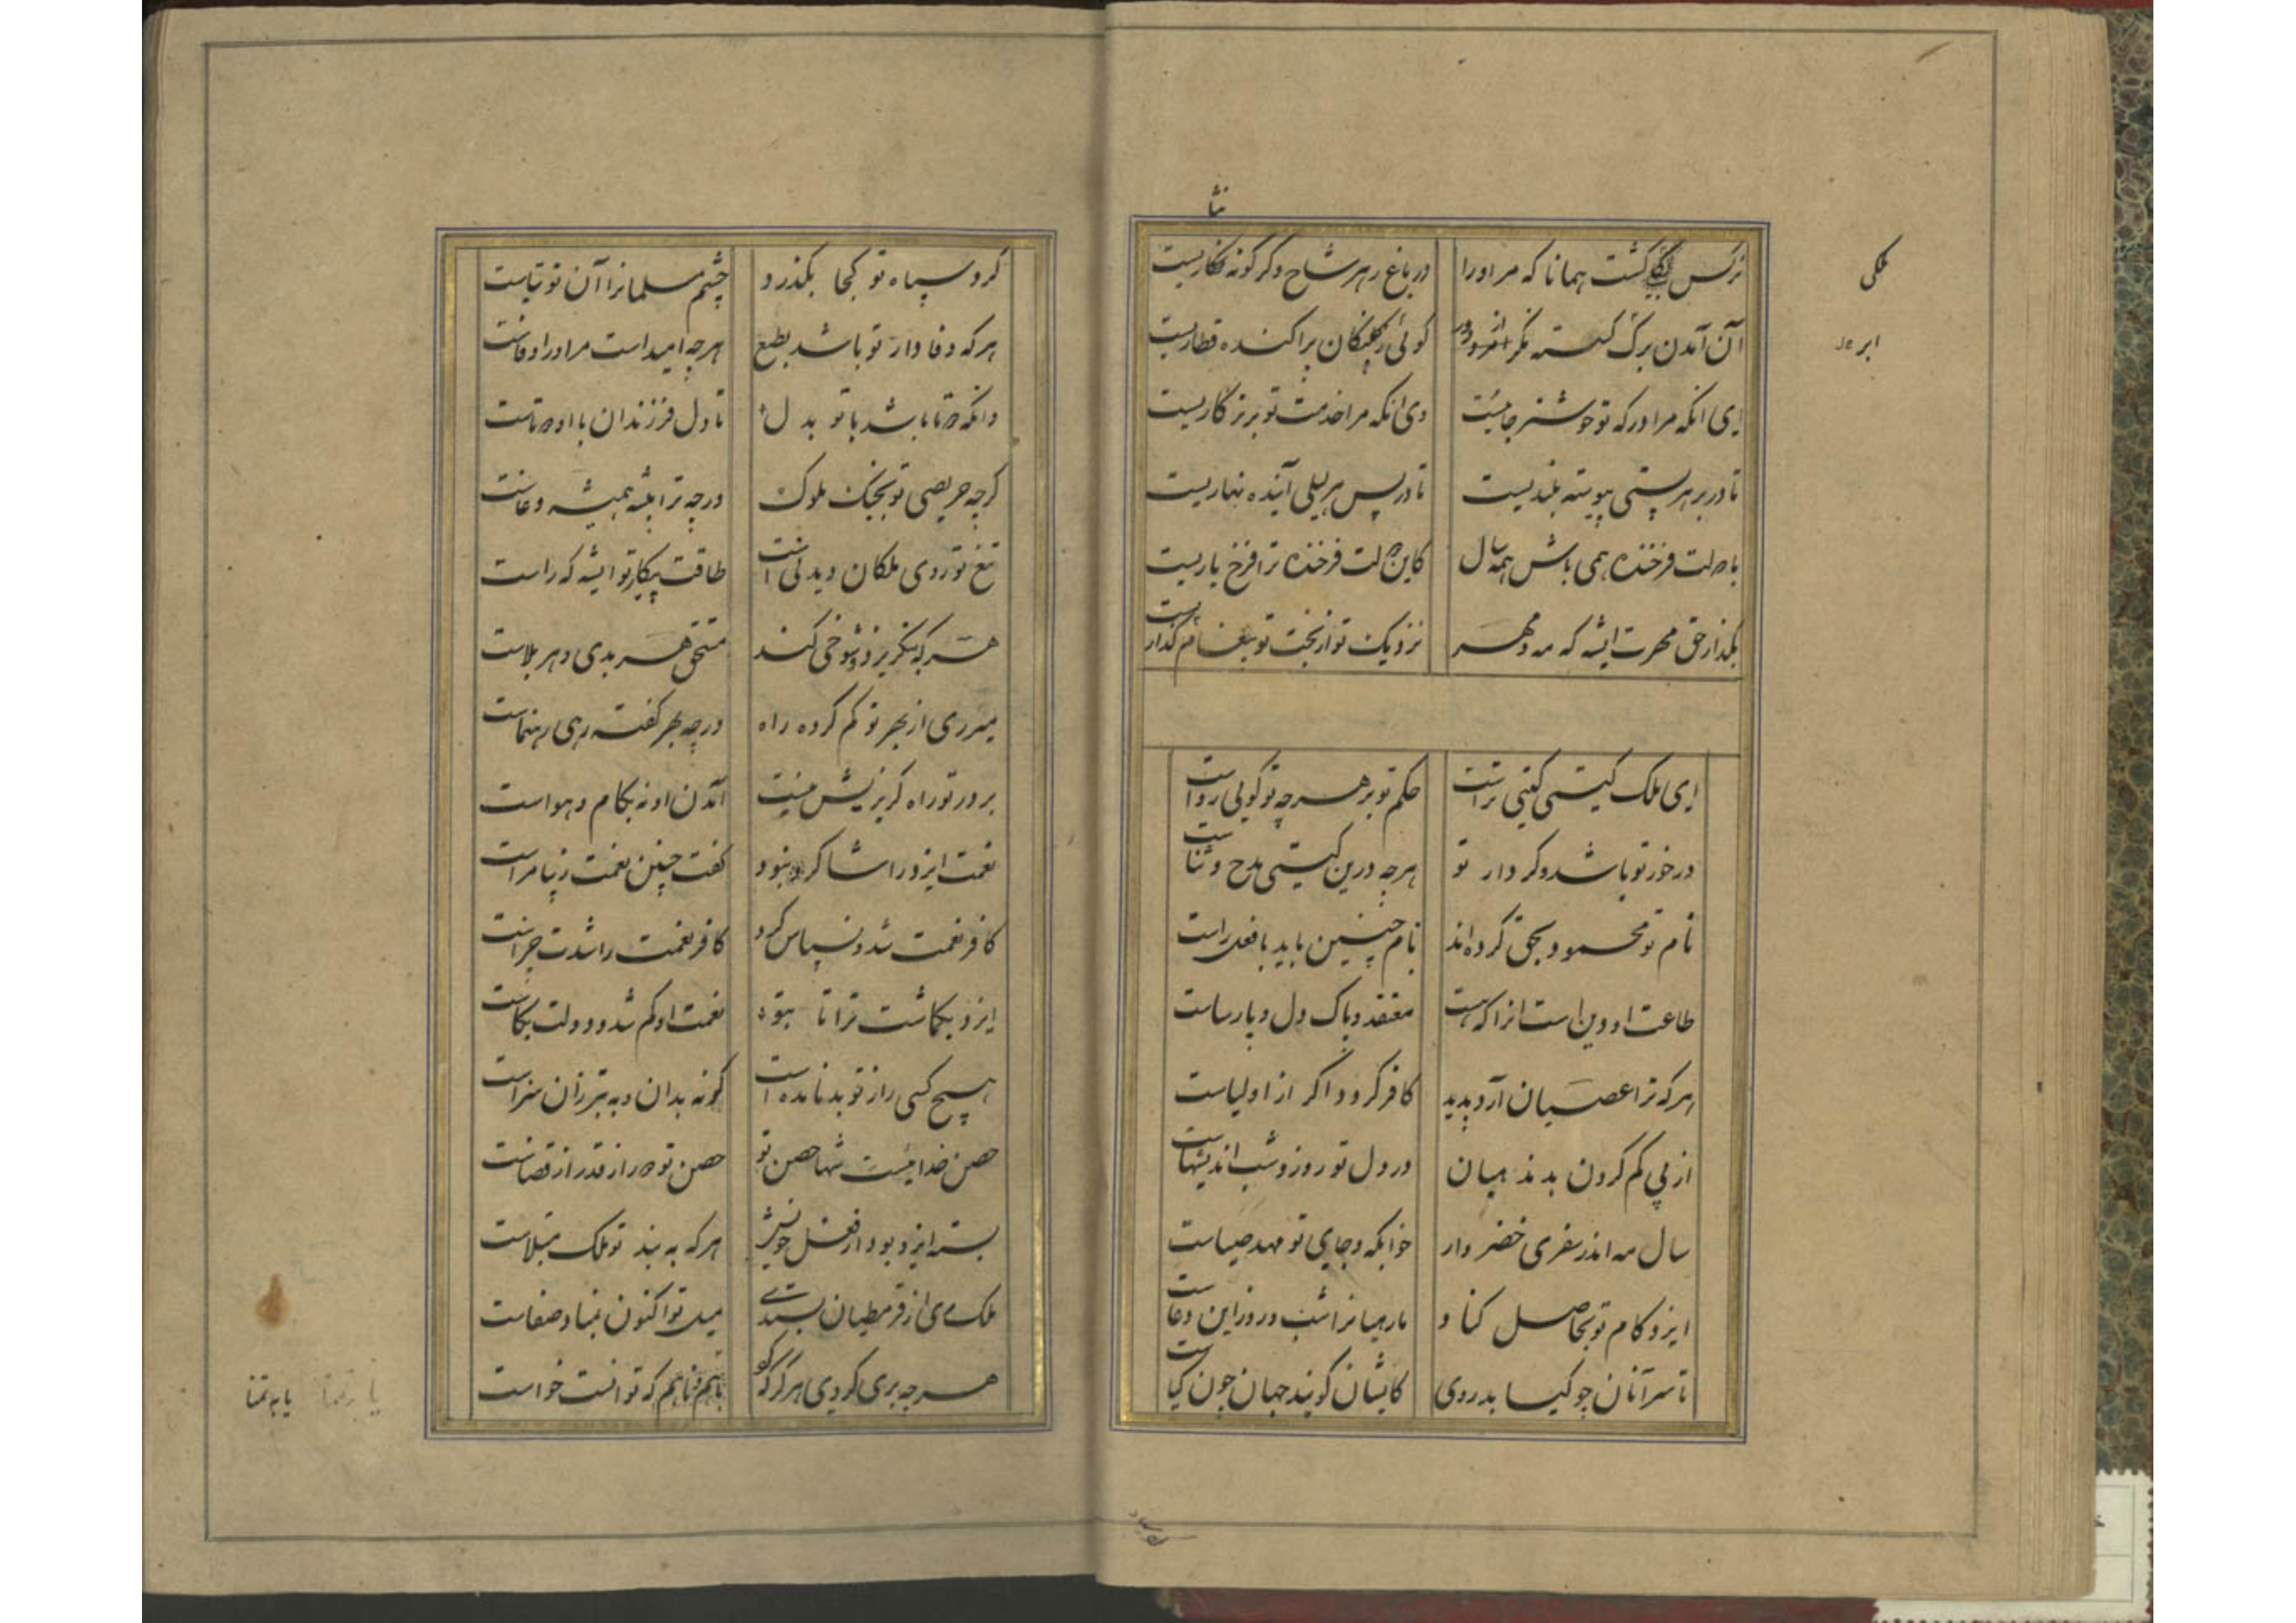 نثا
ملکی
ابر
نرگس ملکی گشت همانا که مر او را در باغ ز هر شاخ دگر گونه نثاریست
آن آمدن برگ گسسته نگر از دور گوئی ز کلنگان پراکنده قطاریست
ای آنکه مرا درگه تو خوشتر جائیست وی آنکه مرا خدمت تو برتر کاریست
تا در بر هر پستی پیوسته بلندیست تا در پس هر لیلی آینده نهاریست
با دولت فرخنده همی باش همه سال کاین دولت فرخنده ترا فرخ یاریست
بگذار حق مهرت ایشه که مه مهر نزدیک تو از بخت تو پیغام گذاریست
ای ملک گیتی گیتی تراست حکم تو بر هر چه تو گویی رواست
در خور تو باشد و کردار تو هر چه درین گیتی مدح و ثناست
نام تو محمود بحق کرده‌اند نام چنین باید با فعل راست
طاعت او دین است انرا که هست معتقد و پاک دل و پارساست
هر که ترا عصیان آرد پدید کافر گردد اگر از اولیاست
از پی کم کردن بد مذهبان در دل تو روز و شب اندیشهاست
سال مه اندر سفری خضر وار خوابگه و جای تو مهد صباست
ایزد کام تو بحاصل کناد ما رهیانرا شب و روز این دعاست
تا سر آنان چو گیا بدروی کایشان گویند جهان چون گیاست
گرد سپاه تو کجا بگذرد چشم مسلمانرا آن توتیاست
هر که وفادار تو باشد بطبع هر چه امید است مر او را وفاست
وانکه دوتا باشد با تو بدل تا دل فرزندان با او دوتاست
گرچه حریصی تو بجنگ ملوک ورچه ترا پیشه همیشه وغاست
تیغ تو روی ملکان دیدنی است طاقت پیکار تو ایشه که راست
هر که بنگریزد و شوخی کند مستحق هر بدی و هر بلاست
میر ری از بهر تو گم کرده راه ورچه بهر گفته رهی رهنماست
بر در تو راه گریزیش نیست آمدن او نه بکام و هواست
نعمت ایزد را شاکر نبود گفت چنین نعمت زیبا مراست
کافر نعمت شد و نسپاس کرد کافر نعمت را شدت جزاست
ایزد بگماشت ترا تا بتو نعمت او کم شد و دولت بکاست
هیچ کسی را ز تو بد نامده است کو نه بدان و به بتر زان سزاست
حصن خدائیست شها حصن تو حصن تو دور از قدر از قضاست
بسته ایزد بود از فعل خویش هر که به بند تو ملک مبتلاست
ملک ری از قرمطیان بستدی میل تو اکنون بمنا و صفاست
هر چه بری کردی هرگز که کرد
یا به تمنا یا به تمنا